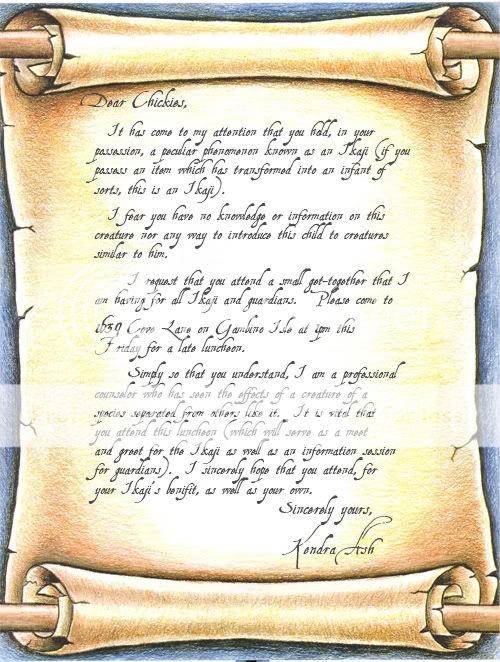 Dear Chickies,
It has come to my attention that you hold, in your
possession, a peculiar phenomenon known as an Ikaji (if you
possess an item which has transformed into an infant of
sorts, this is an Ikaji).
I fear you have no knowledge or information on this
creature nor any way to introduce this child to creatures
similar to him.
I request that you attend a small get-together that I
am having for all Ikaji and guardians. Please come to
1639 Cove Lane on Gambino Isle at 1pm this
Friday for a late luncheon.
Simply so that you understand, I am a professional
counselor who has seen the effects of a creature of a
species separated from others like it. It is vital that
you attend this luncheon (which will serve as a meet
and greet for the Ikaji as well as an information session
for guardians). I sincerely hope that you attend, for
your Ikaji's benifit, as well as your own.
Sincerely yours,
Kendra Ash